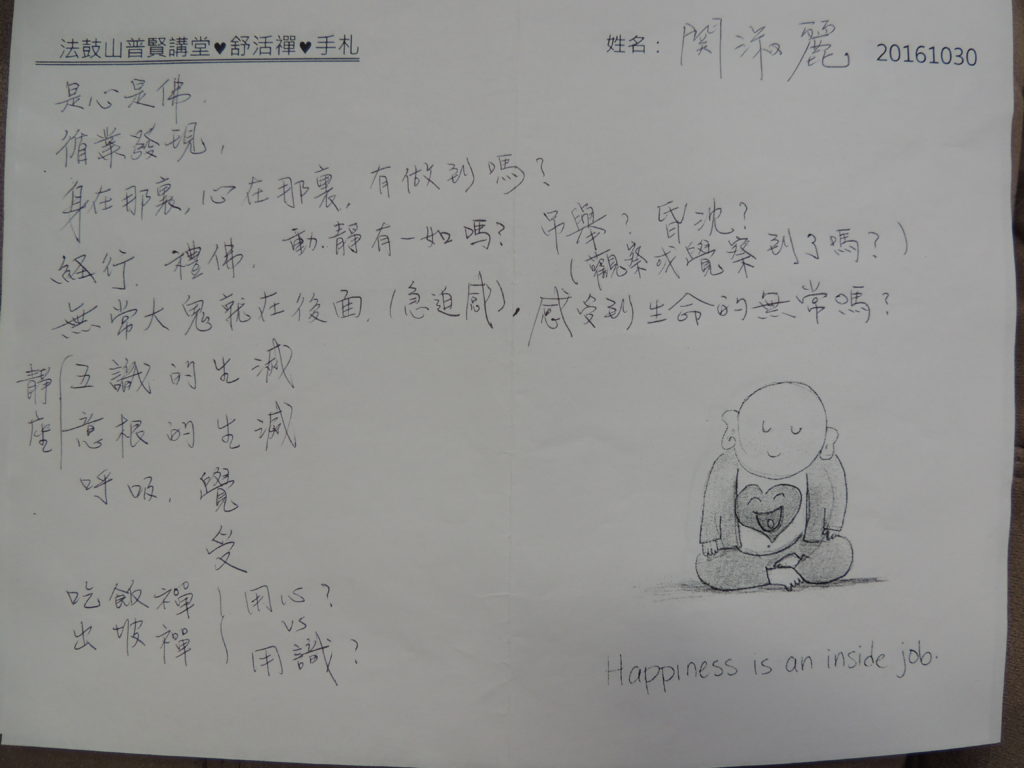 法鼓山普賢講堂♥舒活禪♥手札
姓名： 関淑麗 20161030
是心是佛.
循業發現,
身在那裏,心在那裏,有做到嗎?
經行.禮佛.動.靜有一如嗎? 吊舉? 昏沈?
(觀察或覺察到了嗎?)
無常大鬼就在後面.(急迫感),感受到生命的無常嗎?
靜座
五識的生滅
意根的生滅
呼吸,覺
受
吃飯禪
出坡禪
用心?
vs
用識?
Happiness is an inside job.